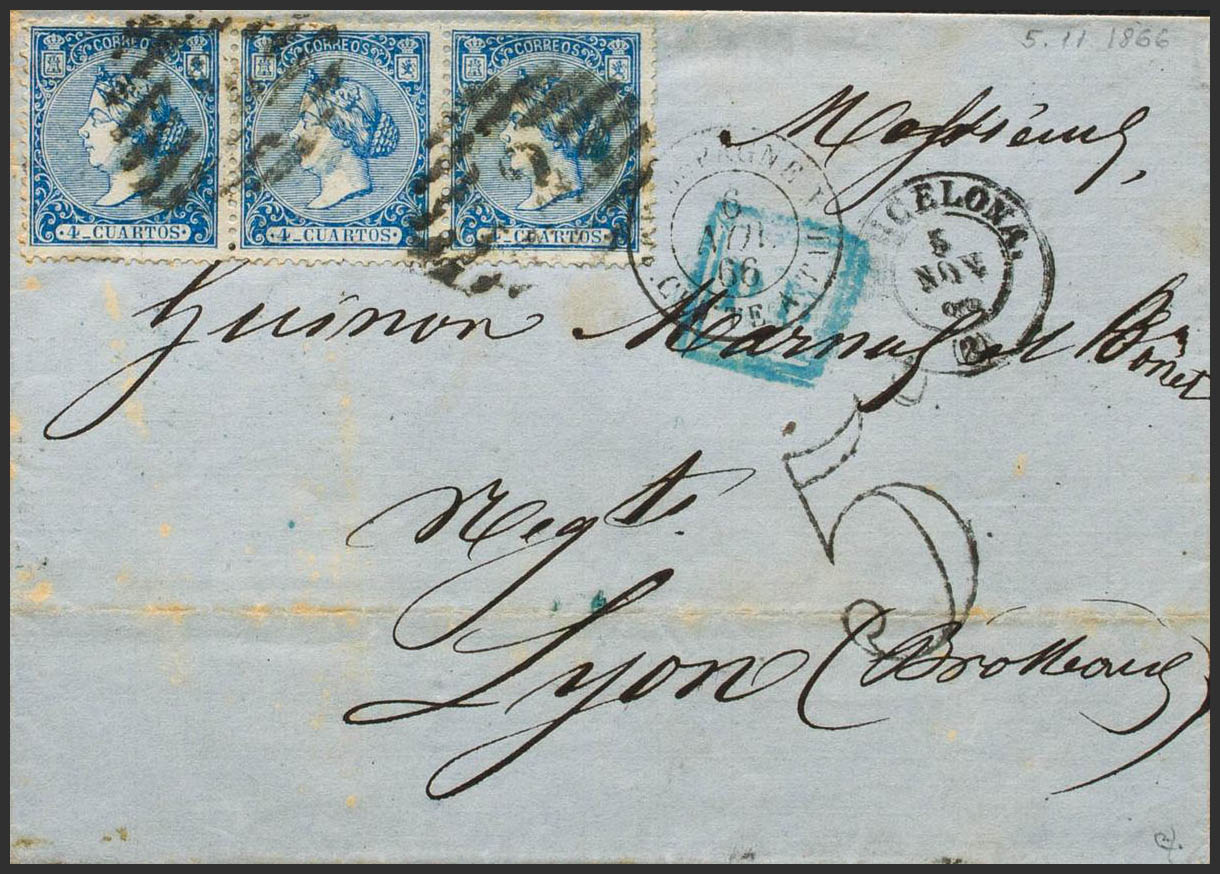 5. 11 1866
CORREOS CORREOS CORREOS
4 CUARTOS 4 CUARTOS 4 CUARTOS
Messieurs,
ESPAGNE
6
NOV.
66
BARCELONA.
5
NOV
66
(2)
Guinon Marnas et Bonnet
5
Negts.
Lyon (Brotteaux)